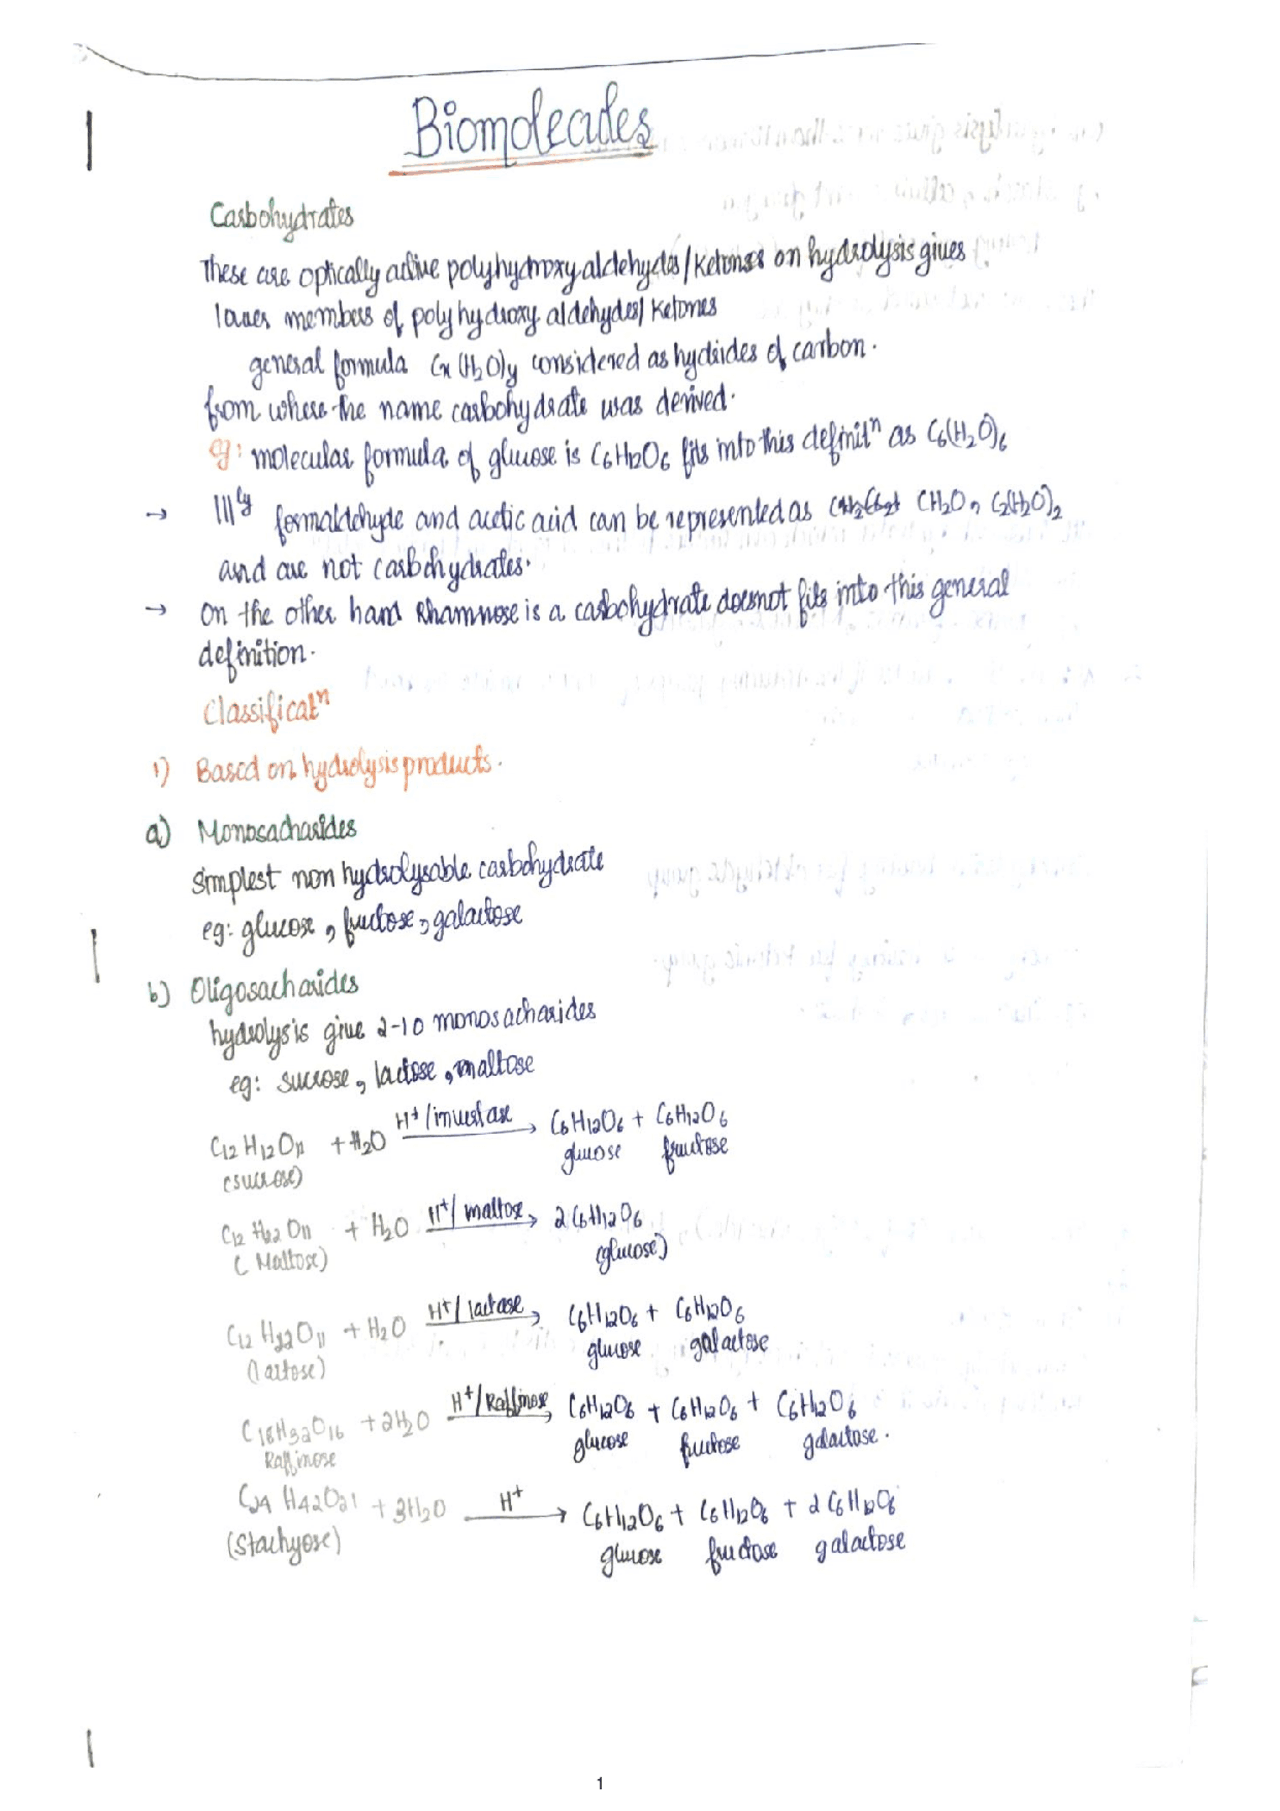 Biomolecules
Carbohydrates
These are optically active polyhydroxy aldehydes/Ketones on hydrolysis gives
lower members of polyhydroxy aldehydes/Ketones
general formula Cx(H₂O)y considered as hydrides of carbon.
from where the name carbohydrate was derived.
eg: molecular formula of glucose is C₆H₁₂O₆ fits into this definitⁿ as C₆(H₂O)₆
→ IIIly formaldehyde and acetic acid can be represented as CH₂O, C₂(H₂O)₂
and are not carbohydrates.
→ On the other hand Rhamnose is a carbohydrate doesnot fits into this general
definition.
Classificatⁿ
1) Based on hydrolysis products.
a) Monosacharides
Simplest non hydrolysable carbohydrate
eg: glucose, fructose, galactose
b) Oligosacharides
hydrolysis give 2-10 monosacharides
eg: sucrose, lactose, maltose
C₁₂H₁₂O₁₁ + H₂O H⁺/invertase → C₆H₁₂O₆ + C₆H₁₂O₆
(sucrose) glucose fructose
C₁₂H₂₂O₁₁ + H₂O H⁺/maltose → 2C₆H₁₂O₆
(Maltose) (glucose)
C₁₂H₂₂O₁₁ + H₂O H⁺/lactase → C₆H₁₂O₆ + C₆H₁₂O₆
(lactose) glucose galactose
C₁₈H₃₂O₁₆ + 2H₂O H⁺/Raffinose → C₆H₁₂O₆ + C₆H₁₂O₆ + C₆H₁₂O₆
Raffinose glucose fructose galactose.
C₂₄H₄₂O₂₁ + 3H₂O H⁺ → C₆H₁₂O₆ + C₆H₁₂O₆ + 2C₆H₁₂O₆
(Stachyose) glucose fructose galactose
1